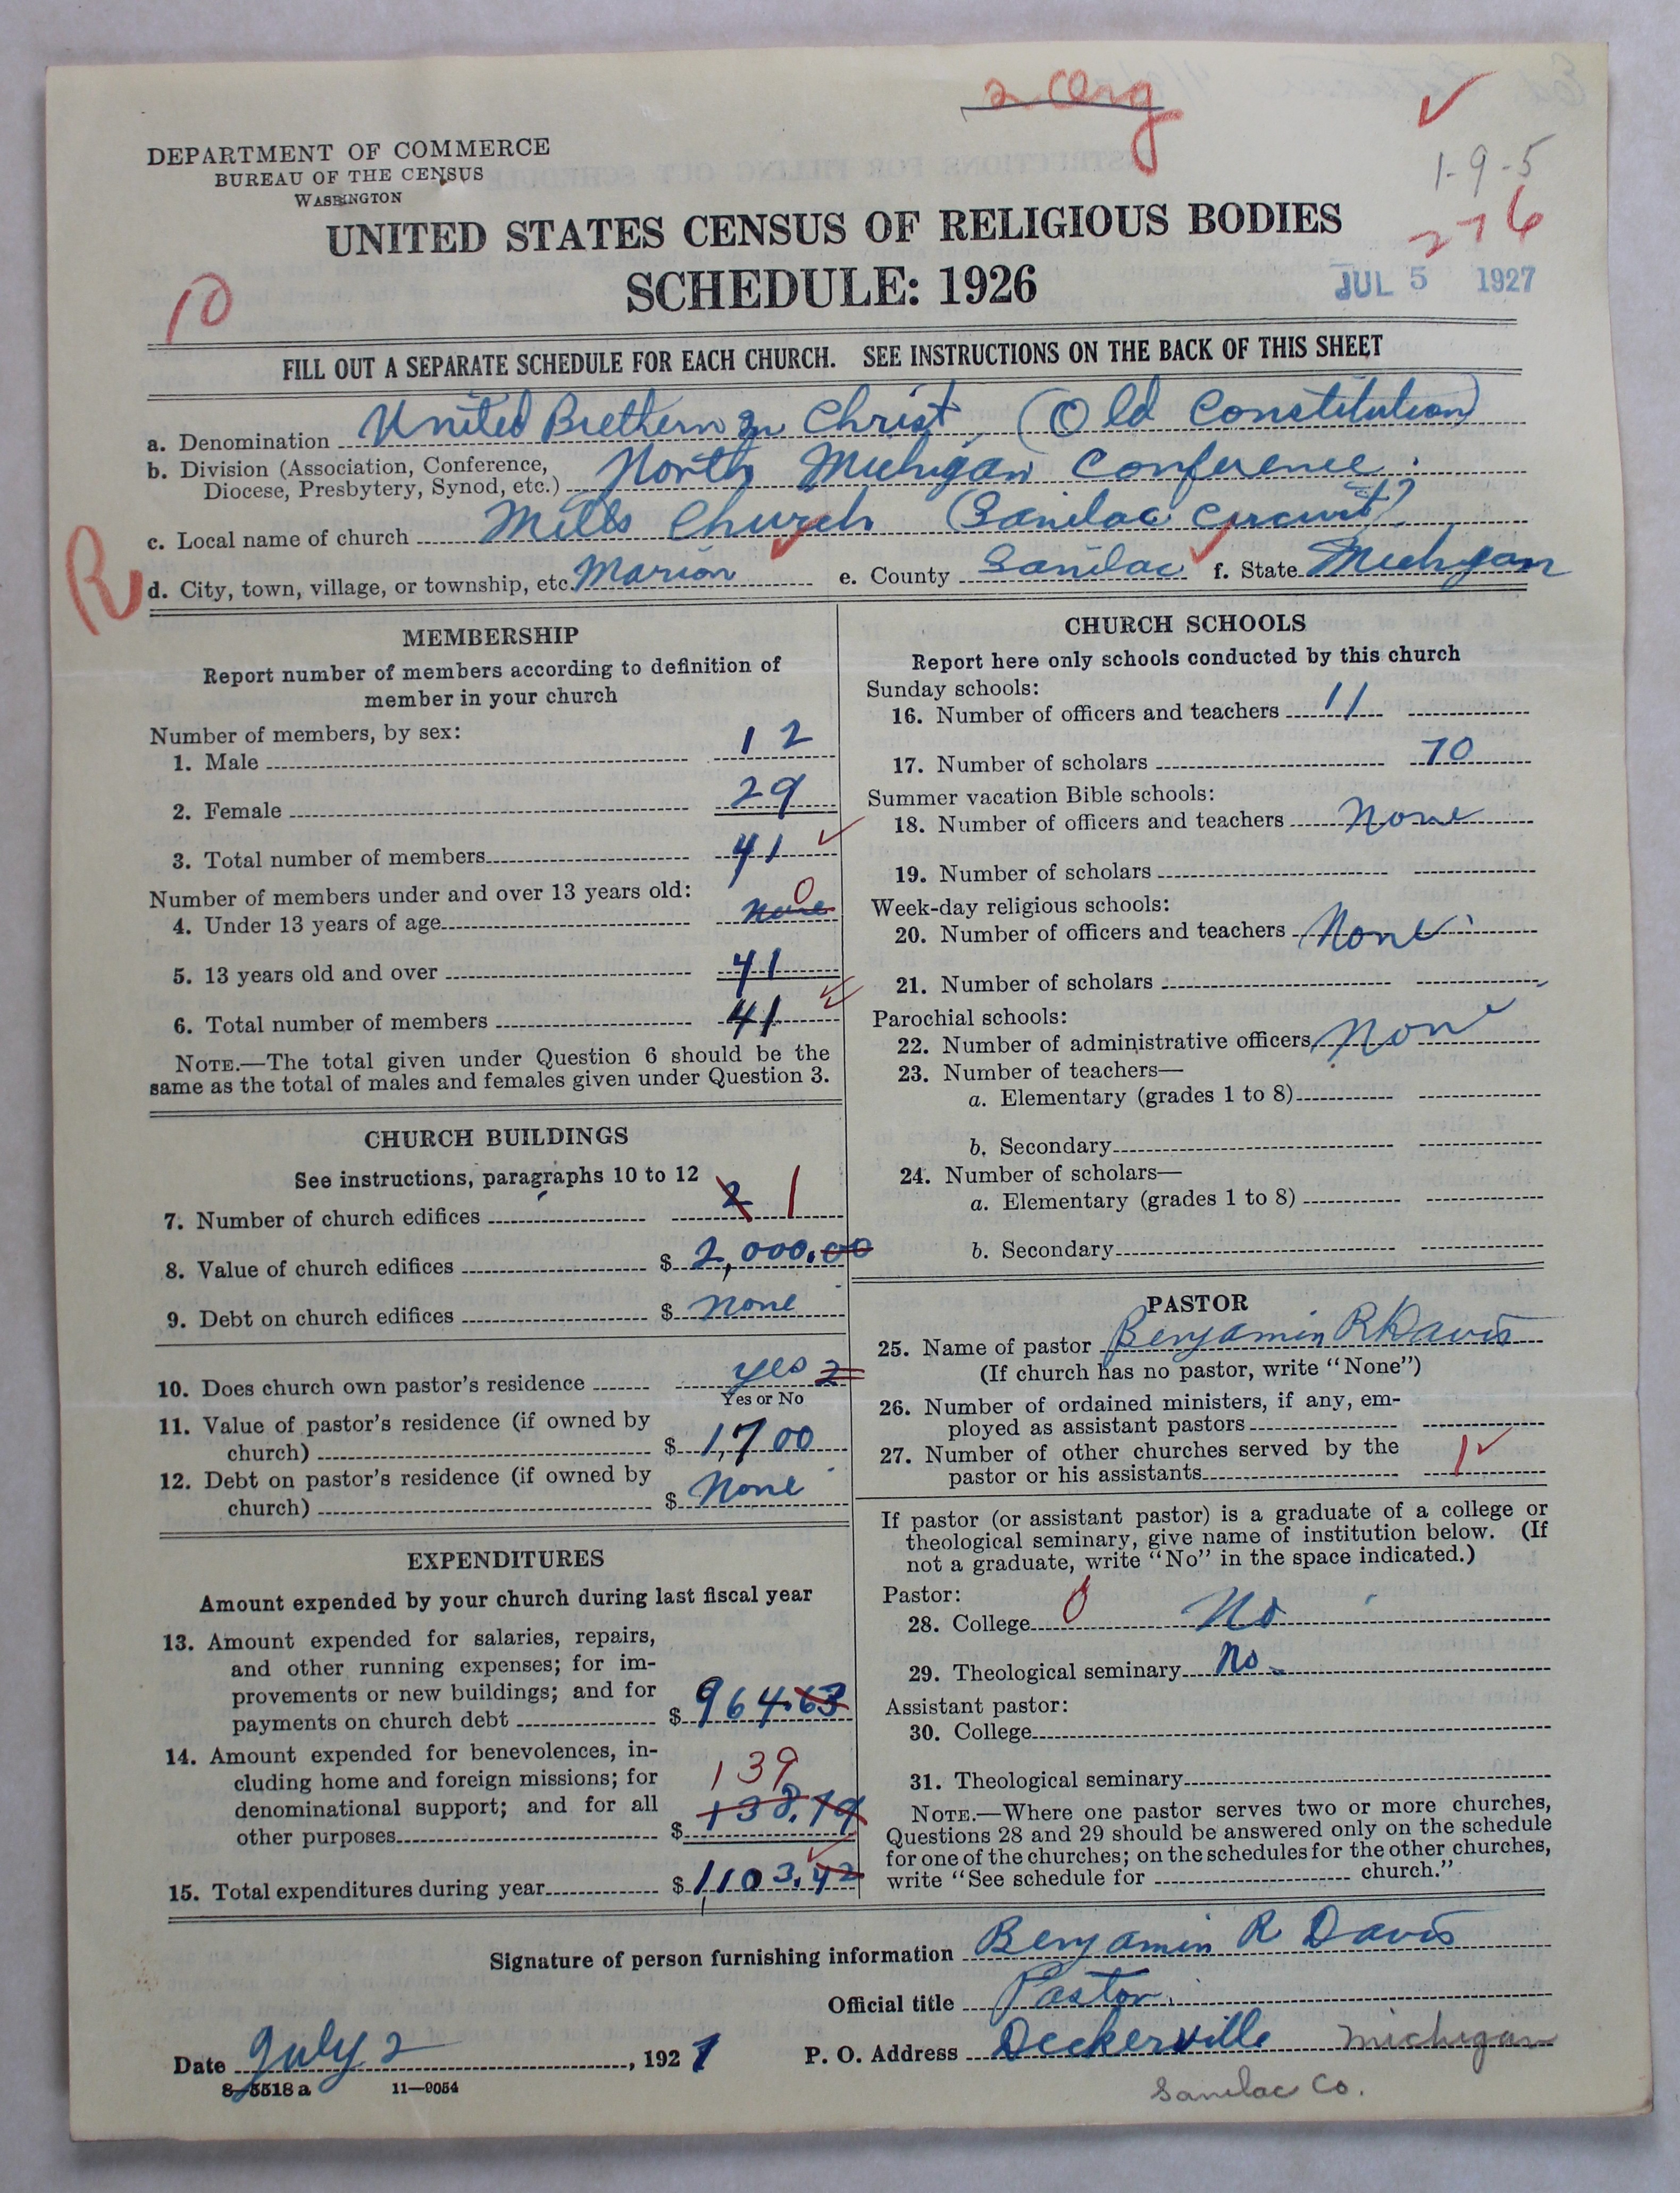 2 Org
1-9-5
276
DEPARTMENT OF COMMERCE
BUREAU OF THE CENSUS
WASHINGTON
UNITED STATES CENSUS OF RELIGIOUS BODIES
SCHEDULE: 1926
JUL 5 1927
10
FILL OUT A SEPARATE SCHEDULE FOR EACH CHURCH. SEE INSTRUCTIONS ON THE BACK OF THIS SHEET
a. Denomination United Brethern In Christ, (Old Constitution)
b. Division (Association, Conference, Diocese, Presbytery, Synod, etc.) North Michigan Conference.
c. Local name of church Mills Church (Sanilac Circuit)
R
d. City, town, village, or township, etc. Marion e. County Sanilac f. State Michigan
MEMBERSHIP
Report number of members according to definition of
member in your church
Number of members, by sex:
1. Male 12
2. Female 29
3. Total number of members 41
Number of members under and over 13 years old:
4. Under 13 years of age none 0
5. 13 years old and over 41
6. Total number of members 41
NOTE.—The total given under Question 6 should be the
same as the total of males and females given under Question 3.
CHURCH BUILDINGS
See instructions, paragraphs 10 to 12
7. Number of church edifices 2 1
8. Value of church edifices $ 2,000.00
9. Debt on church edifices $ none
10. Does church own pastor's residence yes 2
Yes or No
11. Value of pastor's residence (if owned by
church) $ 1,700
12. Debt on pastor's residence (if owned by
church) $ None
EXPENDITURES
Amount expended by your church during last fiscal year
13. Amount expended for salaries, repairs,
and other running expenses; for im-
provements or new buildings; and for
payments on church debt $ 964.63
14. Amount expended for benevolences, in-
cluding home and foreign missions; for 139
denominational support; and for all
other purposes $ 138.79
15. Total expenditures during year $ 1,103.42
CHURCH SCHOOLS
Report here only schools conducted by this church
Sunday schools:
16. Number of officers and teachers 11
17. Number of scholars 70
Summer vacation Bible schools:
18. Number of officers and teachers None
19. Number of scholars
Week-day religious schools:
20. Number of officers and teachers None
21. Number of scholars
Parochial schools:
22. Number of administrative officers None
23. Number of teachers—
a. Elementary (grades 1 to 8)
b. Secondary
24. Number of scholars—
a. Elementary (grades 1 to 8)
b. Secondary
PASTOR
25. Name of pastor Benjamin R Davis
(If church has no pastor, write "None")
26. Number of ordained ministers, if any, em-
ployed as assistant pastors
27. Number of other churches served by the
pastor or his assistants 1
If pastor (or assistant pastor) is a graduate of a college or
theological seminary, give name of institution below. (If
not a graduate, write "No" in the space indicated.)
Pastor:
28. College 0 No
29. Theological seminary No
Assistant pastor:
30. College
31. Theological seminary
NOTE.—Where one pastor serves two or more churches,
Questions 28 and 29 should be answered only on the schedule
for one of the churches; on the schedules for the other churches,
write "See schedule for church."
Signature of person furnishing information Benjamin R Davis
Official title Pastor.
Date July 2, 1927 P. O. Address Deckerville Michigan
8-5518 a 11-9054
Sanilac Co.